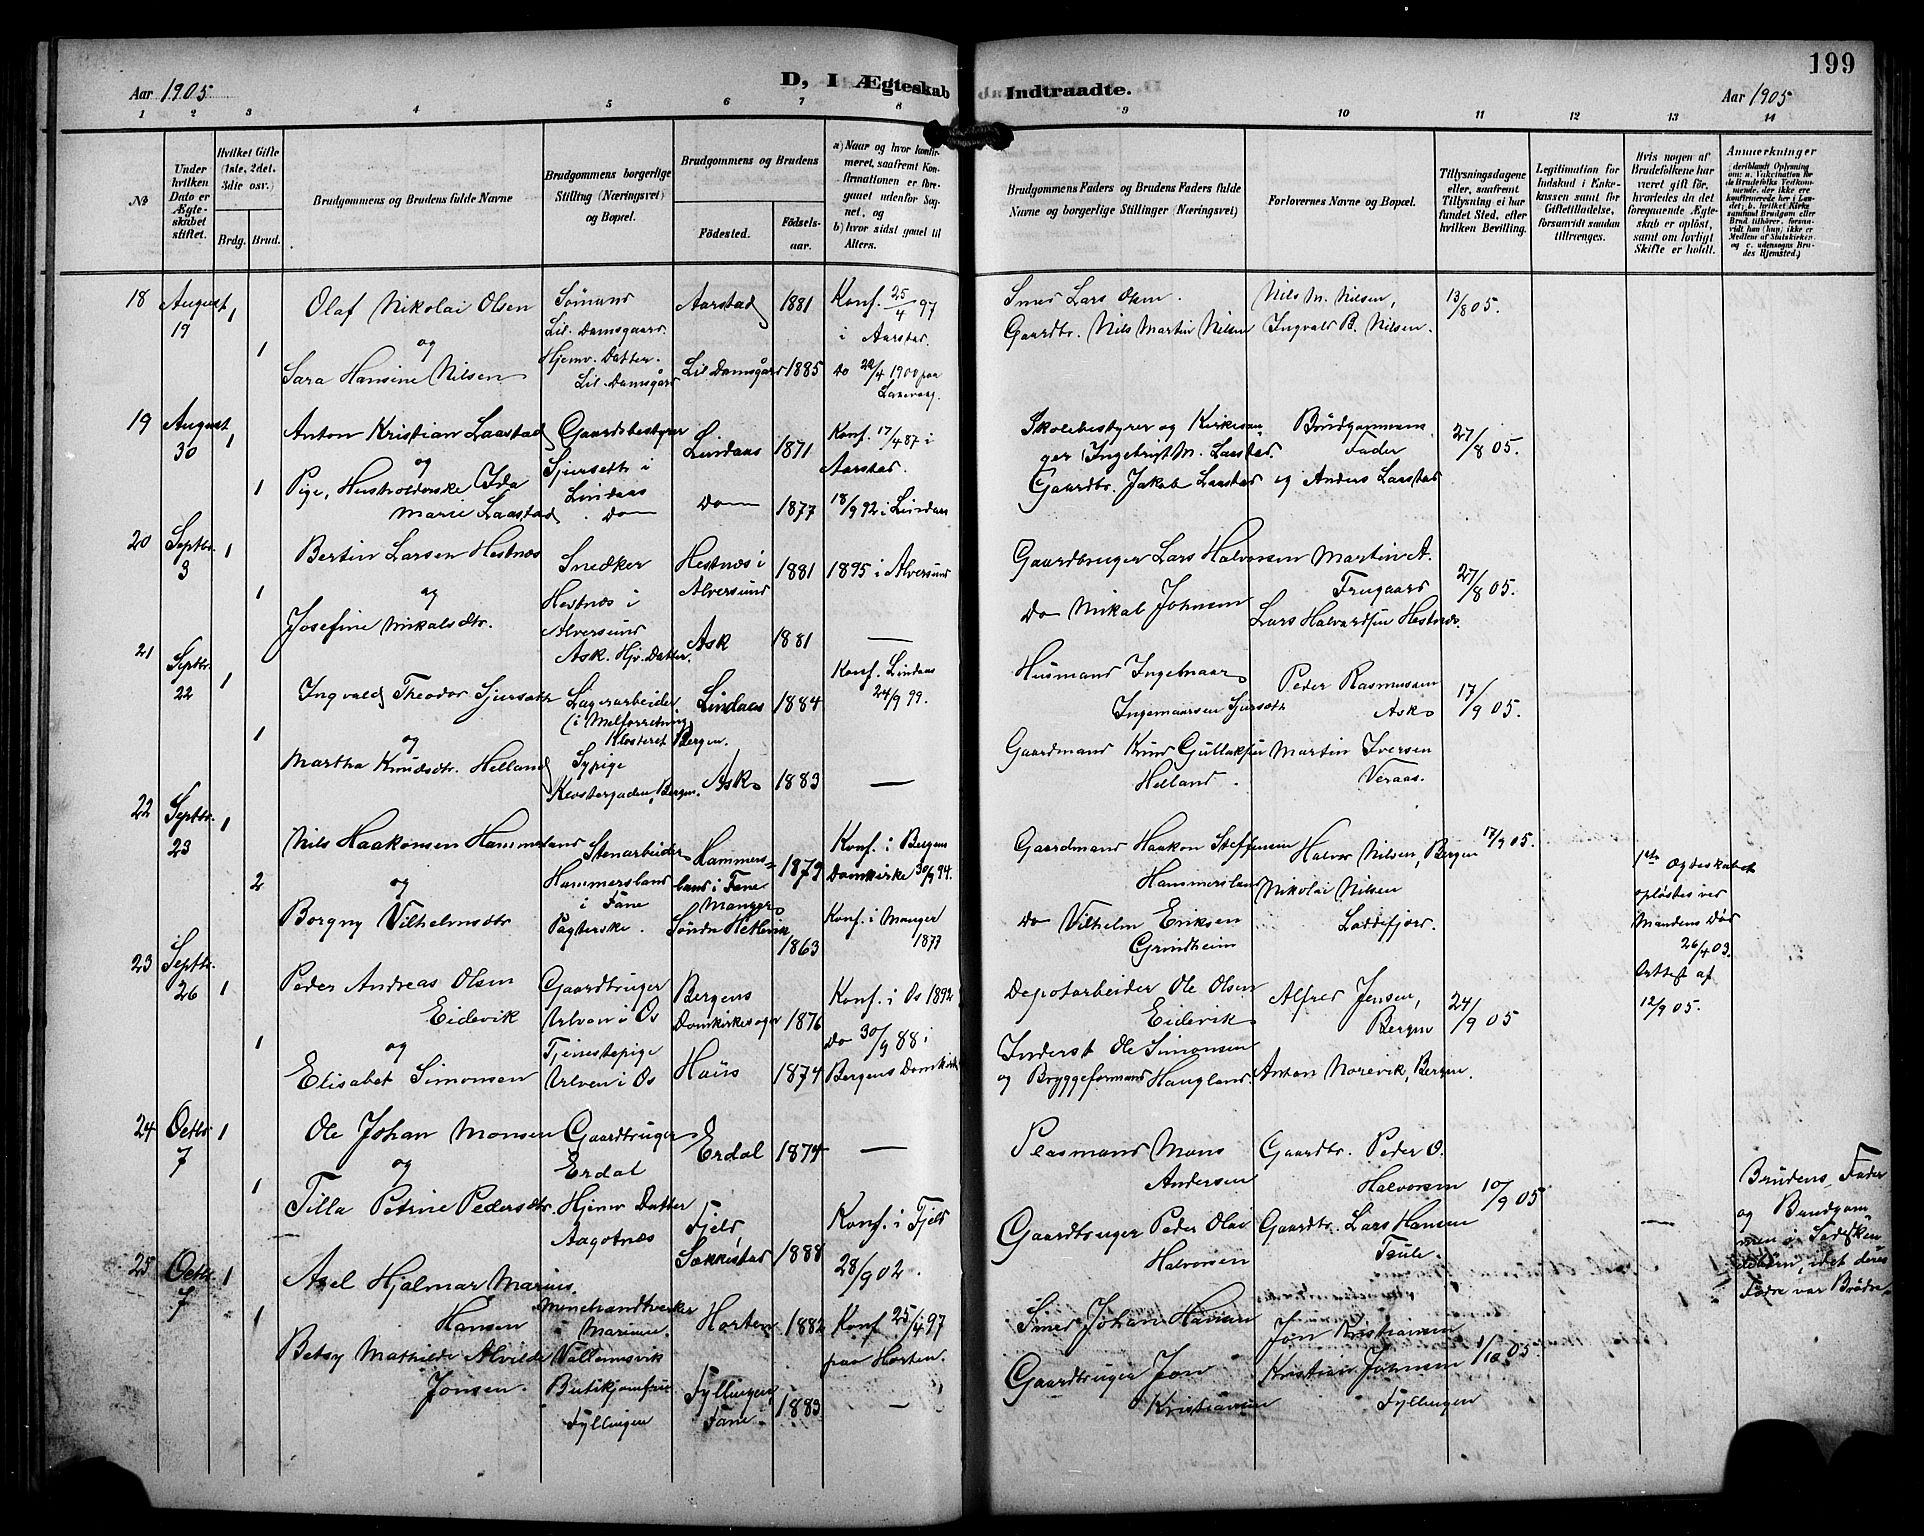 199
Aar 1905.
D, I Ægteskab Indtraadte.
Aar 1905
1 2 3 4 5 6 7 8 9 10 11 12 13 14
No
Under hvilken Dato er Ægteskabet stiftet.
Hvilket Gifte (1ste, 2det, 3die osv.)
Brdg. Brud.
Brudgommens og Brudens fulde Navne
Brudgommens borgerlige Stilling (Næringsvei) og Bopæl.
Brudgommens og Brudens
Fødested. Fødselsaar.
a) Naar og hvor konfirmeret, saafremt Konfirmationen er foregaaet udenfor Sognet, og
b) hvor sidst gaaet til Alters.
Brudgommens Faders og Brudens Faders fulde Navne og borgerlige Stillinger (Næringsvei)
Forlovernes Navne og Bopæl.
Tillysningsdagene eller, saafremt Tillysning ei har fundet Sted, efter hvilken Bevilling.
Legitimation for Indskud i Enkekassen samt for Giftetilladelse, forsaavidt saadan tiltrænges.
Hvis nogen af Brudefolkene har været gift før, hvorledes da det foregaaende Ægteskab er opløst, samt om lovligt Skifte er holdt.
Anmerkninger
18 August 19 1 Olaf Nikolai Olsen Sømand Lil. Damsgaard Aarstad 1881 Konf. 25/4 97 i Aarstad. Smed Lars Olsen. Nils M. Nilsen, 13/8 05.
og
1 Sara Hansine Nilsen Hjemv. Datter. Lil. Damsgård Lil. Damsgård 1885 Do 22/4 1900 paa Laxevaag. Gaardbr. Nils Martin Nilsen Ingvald B. Nilsen.
19 August 30 1 Anton Kristian Laastad Gaardsbestyrer Sjursetr i Lindaas Lindaas 1871 Konf. 17/4 87 i Aarstad. Skolebestyrer og Kirkesanger Ingebrigt M. Laastad Brudgommens Fader 27/8 05.
og
1 Pige, Husholderske Ida Marie Laastad Do Do 1877 18/9 92 i Lindaas Gaardbr. Jakob Laastad og Anders Laastad
20 Septbr. 3 1 Bertin Larsen Hestnæs Snedker Hestnæs i Alversund Hestnæs i Alversund 1881 1895 i Alversund Gaardbruger Lars Halvorsen Martin A. Frugaard 27/8 05.
og
1 Josefine Mikalsdtr. Ask. Hjv. Datter. Ask 1881 — Do Mikal Johnsen Lars Halvardsen Hestnæs.
21 Septbr. 22 1 Ingvald Theodor Sjursetr Lagerarbeider (i Melforretning) Klosteret Bergen. Lindaas 1884 Konf. Lindaas 24/9 99. Husmand Ingebrigt Ingemaarsen Sjursetr Peder Rasmussen Ask 17/9 05.
og
1 Martha Knudsdtr. Helland Sypige Klostergaden, Bergen. Ask 1883 — Gaardmand Knud Gullaksen Helland. Martin Iversen Veraas.
22 Septbr. 23 1 Nils Haakonsen Hammersland Stenarbeider Hammersland i Fane Hammersland i Fane 1879 Konf. i Bergens Domkirke 30/9 94. Gaardmand Haakon Steffensen Hammersland Halvor Nilsen, Bergen 17/9 05.
og
2 Borgny Vilhelmsdtr Pagterske. Manger Søndre Hetlevik 1863 Konf. i Manger 1877 Do Vilhelm Eriksen Grindheim Nikolai Nilsen Loddefjord. 1ste Ægteskabet opløstes ved Mandens Død 26/4 03. Attest af 12/9 05.
23 Septbr. 26 1 Peder Andreas Olsen Eidevik Gaardbruger Ulven i Os Bergens Domkirkesogn 1876 Konf. i Os 1892 Depotarbeider Ole Olsen Eidevik Alfred Jensen, Bergen 24/9 05
og
1 Elisabet Simonsen Tjenestepige Ulven i Os Haus 1874 Do 30/9 88 i Bergens Domkirke Inderst Ole Simonsen og Bryggeformand Haugland. Anton Norevik, Bergen.
24 Octbr. 7 1 Ole Johan Monsen Gaardbruger Erdal Erdal 1874 — Pladsmand Mons Andersen Gaardbr. Peder O. Halvorsen 10/9 05
og
1 Tilla Petrine Pedersdtr. Hjemv Datter Aagotnæs Fjeld, Sækkestad 1888 Konf. i Fjeld 28/9 02. Gaardbruger Peder Olai Halvorsen Gaardbr. Lars Hansen Tsule. — Brudens Fader og Brudgommen er Sødskendebørn, idet deres Fædre var Brødre.
25 Octbr. 7 1 Axel Hjalmar Marius Hansen Minehandtverker i Marinen. Vallemsvik Horten 1882 Konf. 25/4 97 paa Horten. Smed Johan Hansen Jon Kristiansen 1/10 05.
1 Betsy Mathilde Alvilde Jonsen. Butikjomfru Fyllingen Fyllingen, Fane 1883 — Gaardbruger Jon Kristiansen Kristian Johnsen Fyllingen